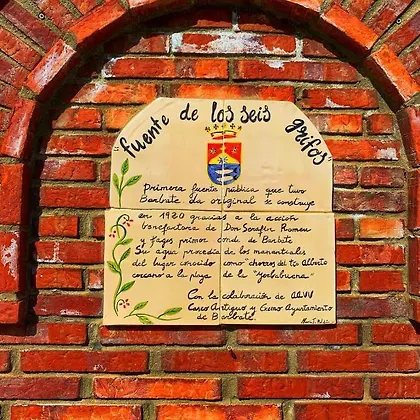 "fuente de los seis grifos"
Primera fuente pública que tuvo
Barbate. La original se construye
en 1920 gracias a la acción
benefactora de Don Serafín Romeu
y Fages primer conde de Barbate
Su agua procedía de los manantiales
del lugar conocido como "chorros del tío Alberto
cercano a la playa de la "Yerbabuena"
Con la colaboración de AAVV
Casco Antiguo y Excmo Ayuntamiento
de Barbate